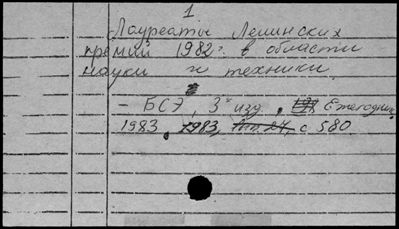 1
Лауреаты Ленинских
премий 1982 г. в области
науки и техники
– БСЭ, 3е изд, Ежегодник
1983, 1983, с 580